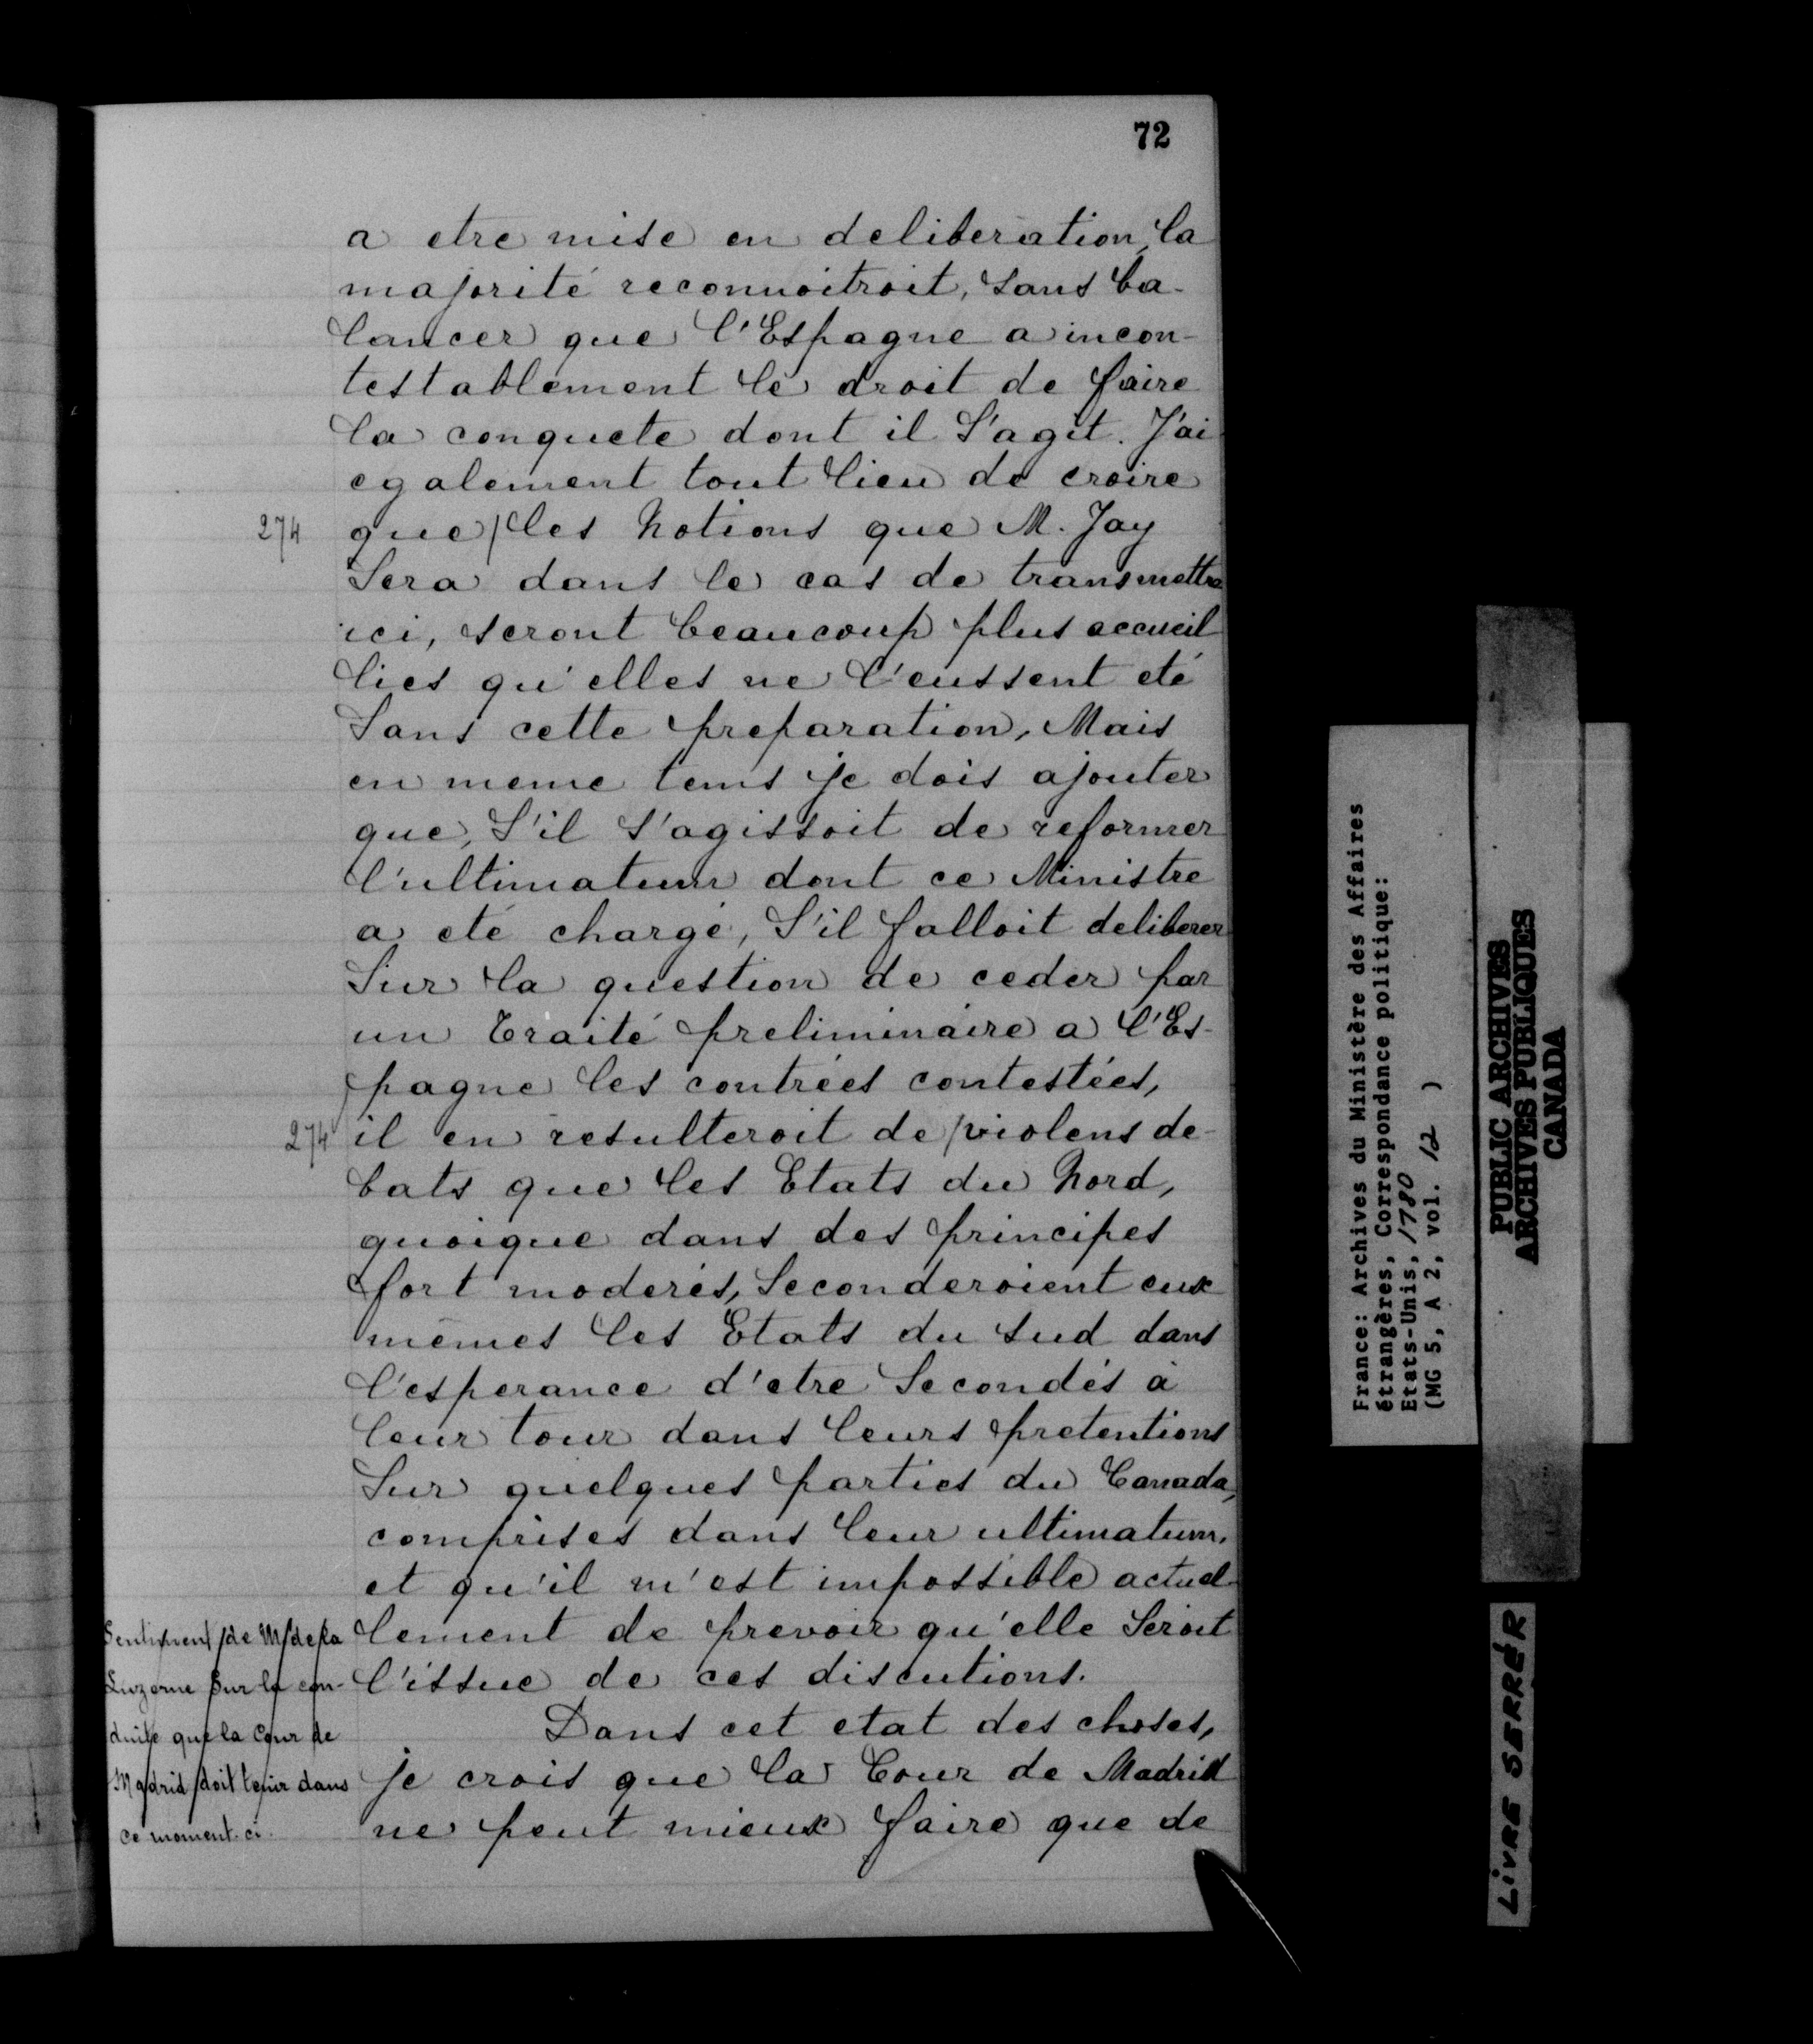 72
a etre mise en deliberation, la
majorité reconnoitroit, sans ba-
lancer que l'Espagne a incon-
testablement le droit de faire
la conquete dont il S'agit. J'ai
egalement tout lieu de croire
274 que/les Notions que M. Jay
Sera dans le cas de transmettre
ici, seront beaucoup plus accueil
lies qu'elles ne l'eussent eté
Sans cette preparation, Mais
en meme tems je dois ajouter
que, S'il s'agissoit de reformer
l'ultimatum dont ce Ministre
a eté chargé, S'il falloit deliberer
Sur la question de ceder par
un Traité preliminaire a l'Es-
pagne les contrées contestées,
274 il en resulteroit de/violens de-
bats que les Etats du Nord,
quoique dans des principes
fort moderés, Seconderoient eux
mêmes les Etats du sud dans
l'esperance d'etre Secondés à
leur tour dans leurs pretentions
Sur quelques parties du Canada,
comprises dans leur ultimatum,
et qu'il m'est impossible actuel-
lement de prevoir qu'elle Seroit
l'issue de ces discutions.
Dans cet etat des choses,
je crois que la Cour de Madrid
ne peut mieux faire que de
Sentiment/de M/de/la
Luzerne Sur la con-
duite que la Cour de
Madrid/doit tenir dans
ce moment-ci.
France: Archives du Ministère des Affaires
étrangères, Correspondance politique:
Etats-Unis, 1780
(MG 5, A 2, vol. 12 )
PUBLIC ARCHIVES
ARCHIVES PUBLIQUES
CANADA
LIVRE SERRÉR